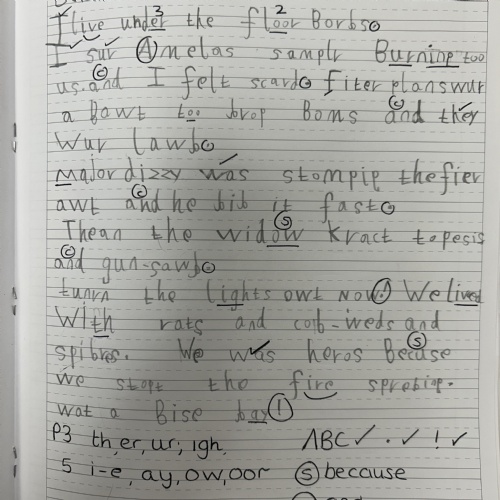 I live under the floor Borbs.
I sur Amelas samplr Burning too
us. and I felt scard. fiter planswur
a Bawt too brop Boms and ther
wur lawb.
Major dizzy was stompip thefier
awt and he bib it fast.
Thean the widow kract topesis
and gun-sawb.
tunrn the lights owt Now! We lived
With rats and cob-weds and
spibres. We was heros Becuse
we stopt the fire spreting.
wat a Bise bay!
P3 th, er, ur, igh, ABC ✓ . ✓ ! ✓
5 i-e, ay, ow, oor (S) because